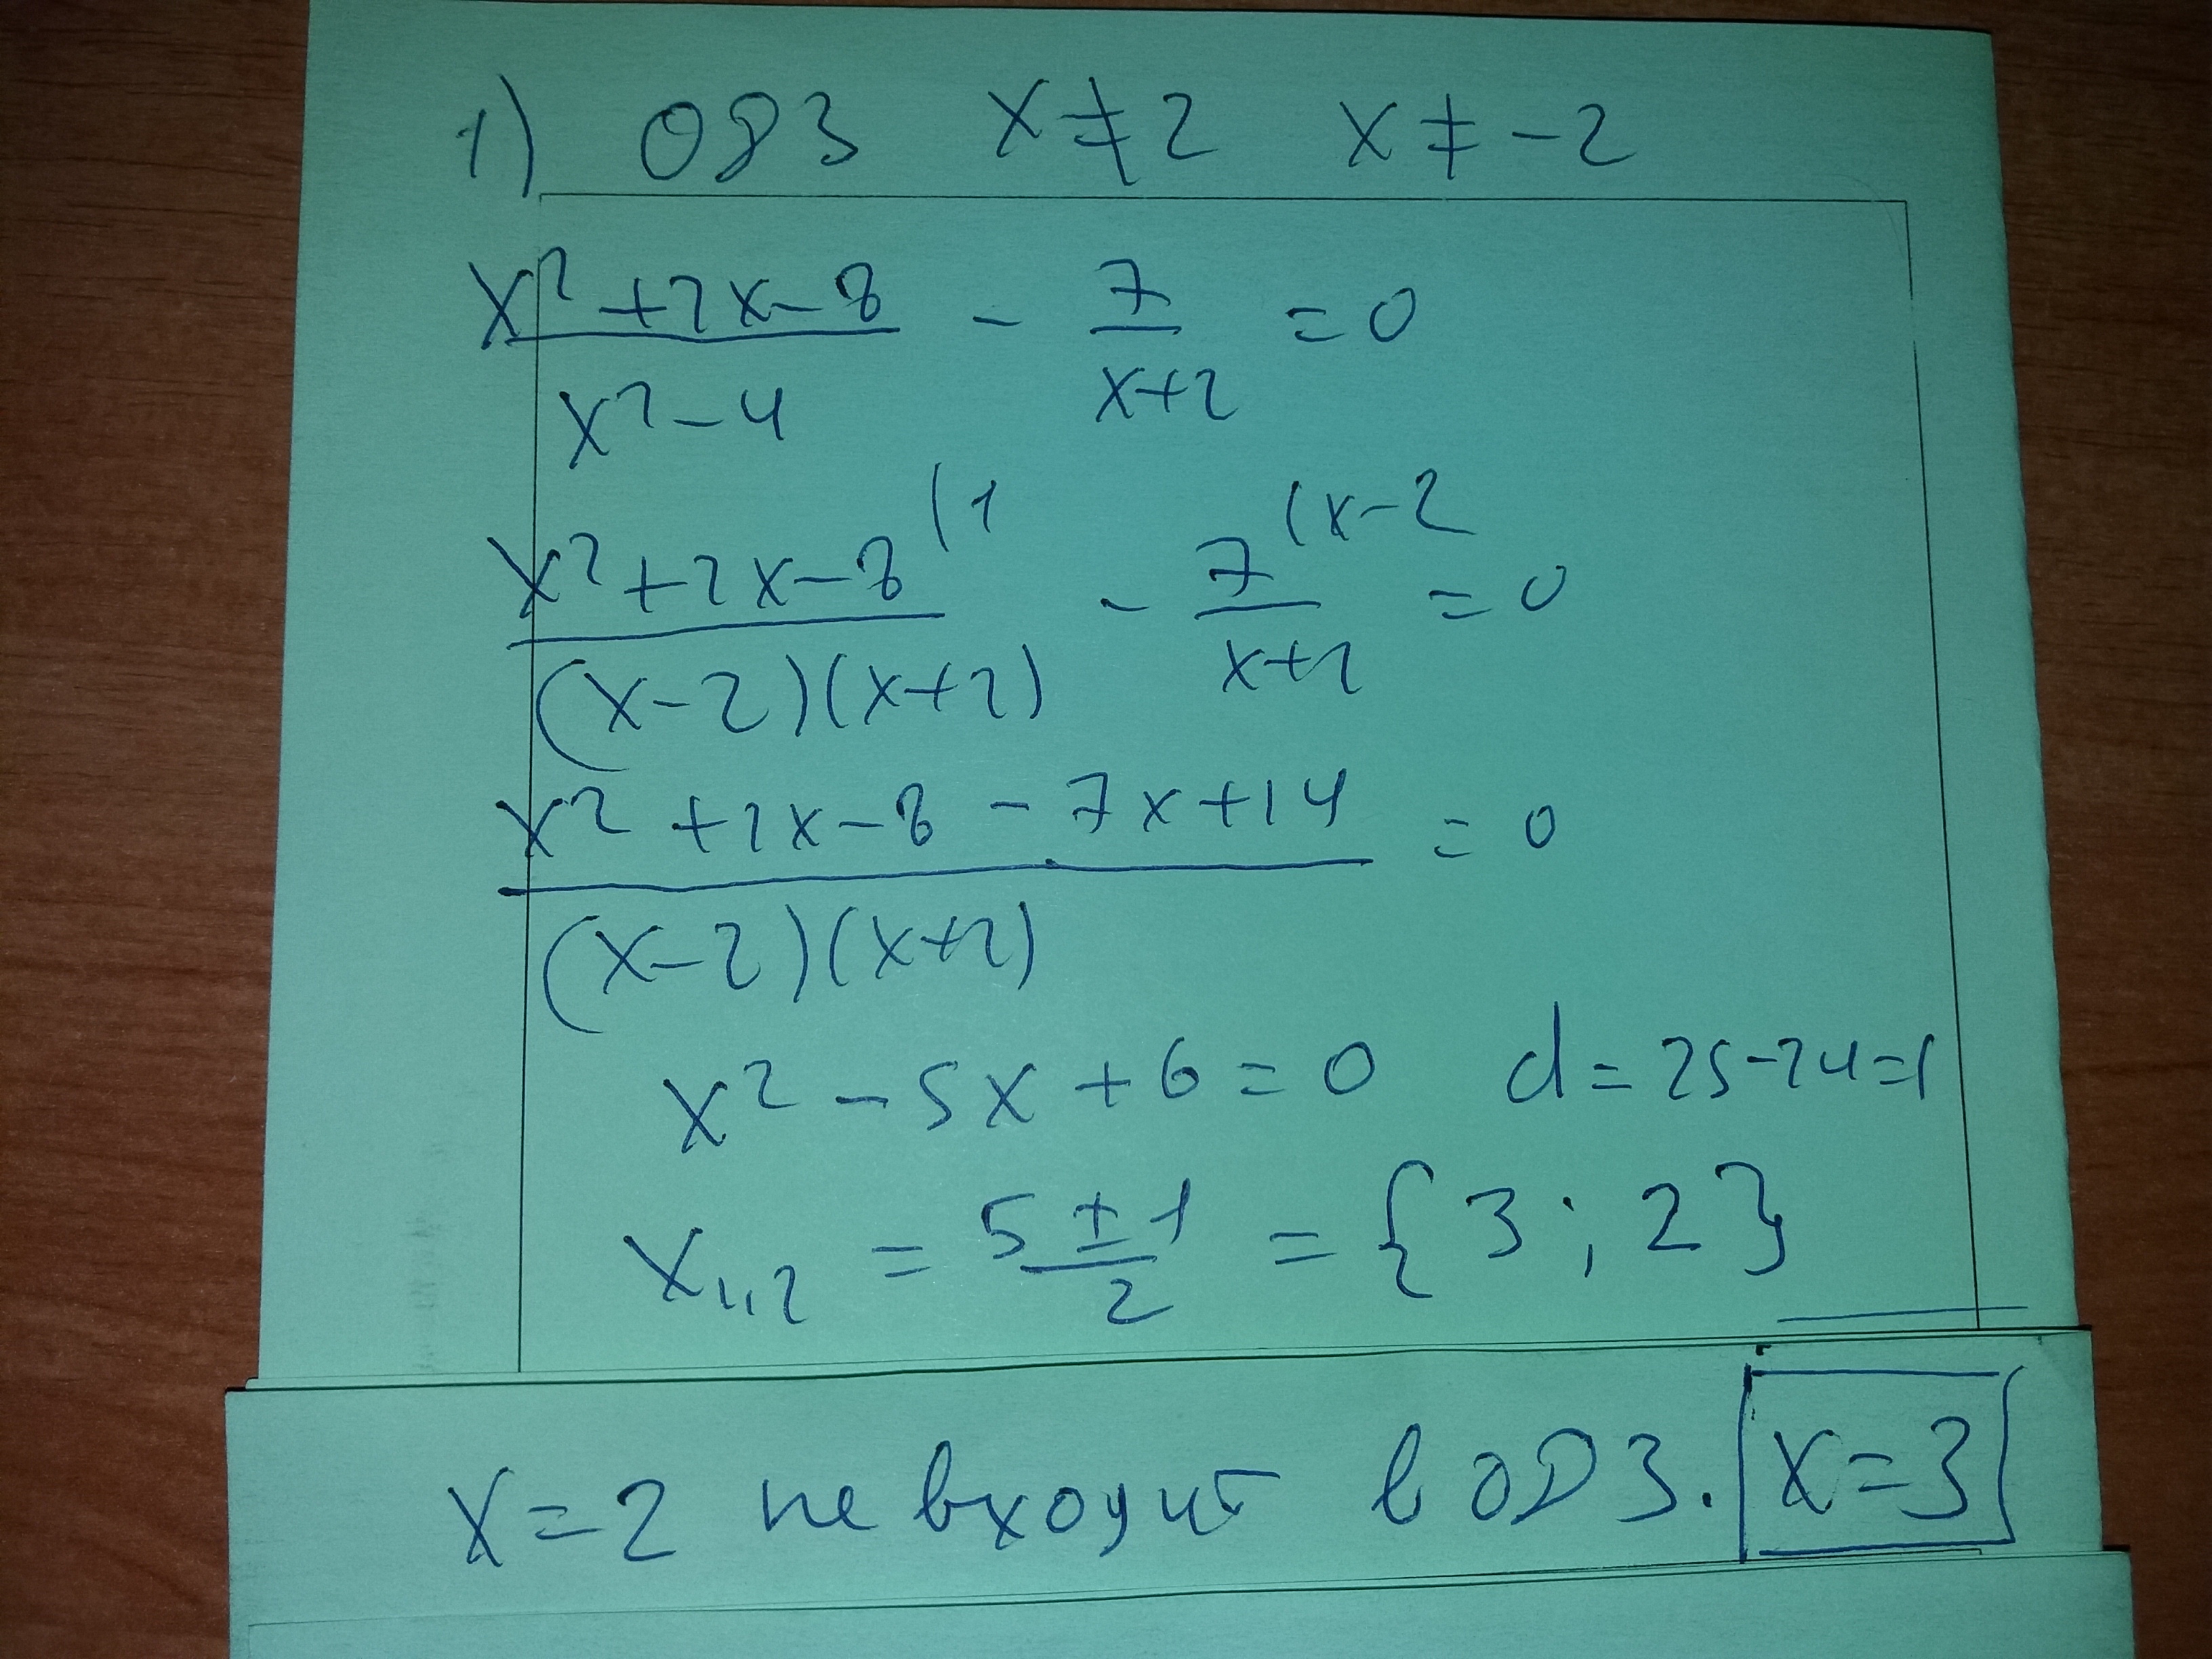 1) ОДЗ x≠2 x≠-2
x²+2x-8 - 7 =0
x²-4 x+2
x²+2x-8 (1 - 7 (x-2 =0
(x-2)(x+2) x+2
x²+2x-8-7x+14 =0
(x-2)(x+2)
x²-5x+6=0 d=25-24=1
x₁,₂ = 5±1 = {3; 2}
2
x=2 не входит в ОДЗ. x=3